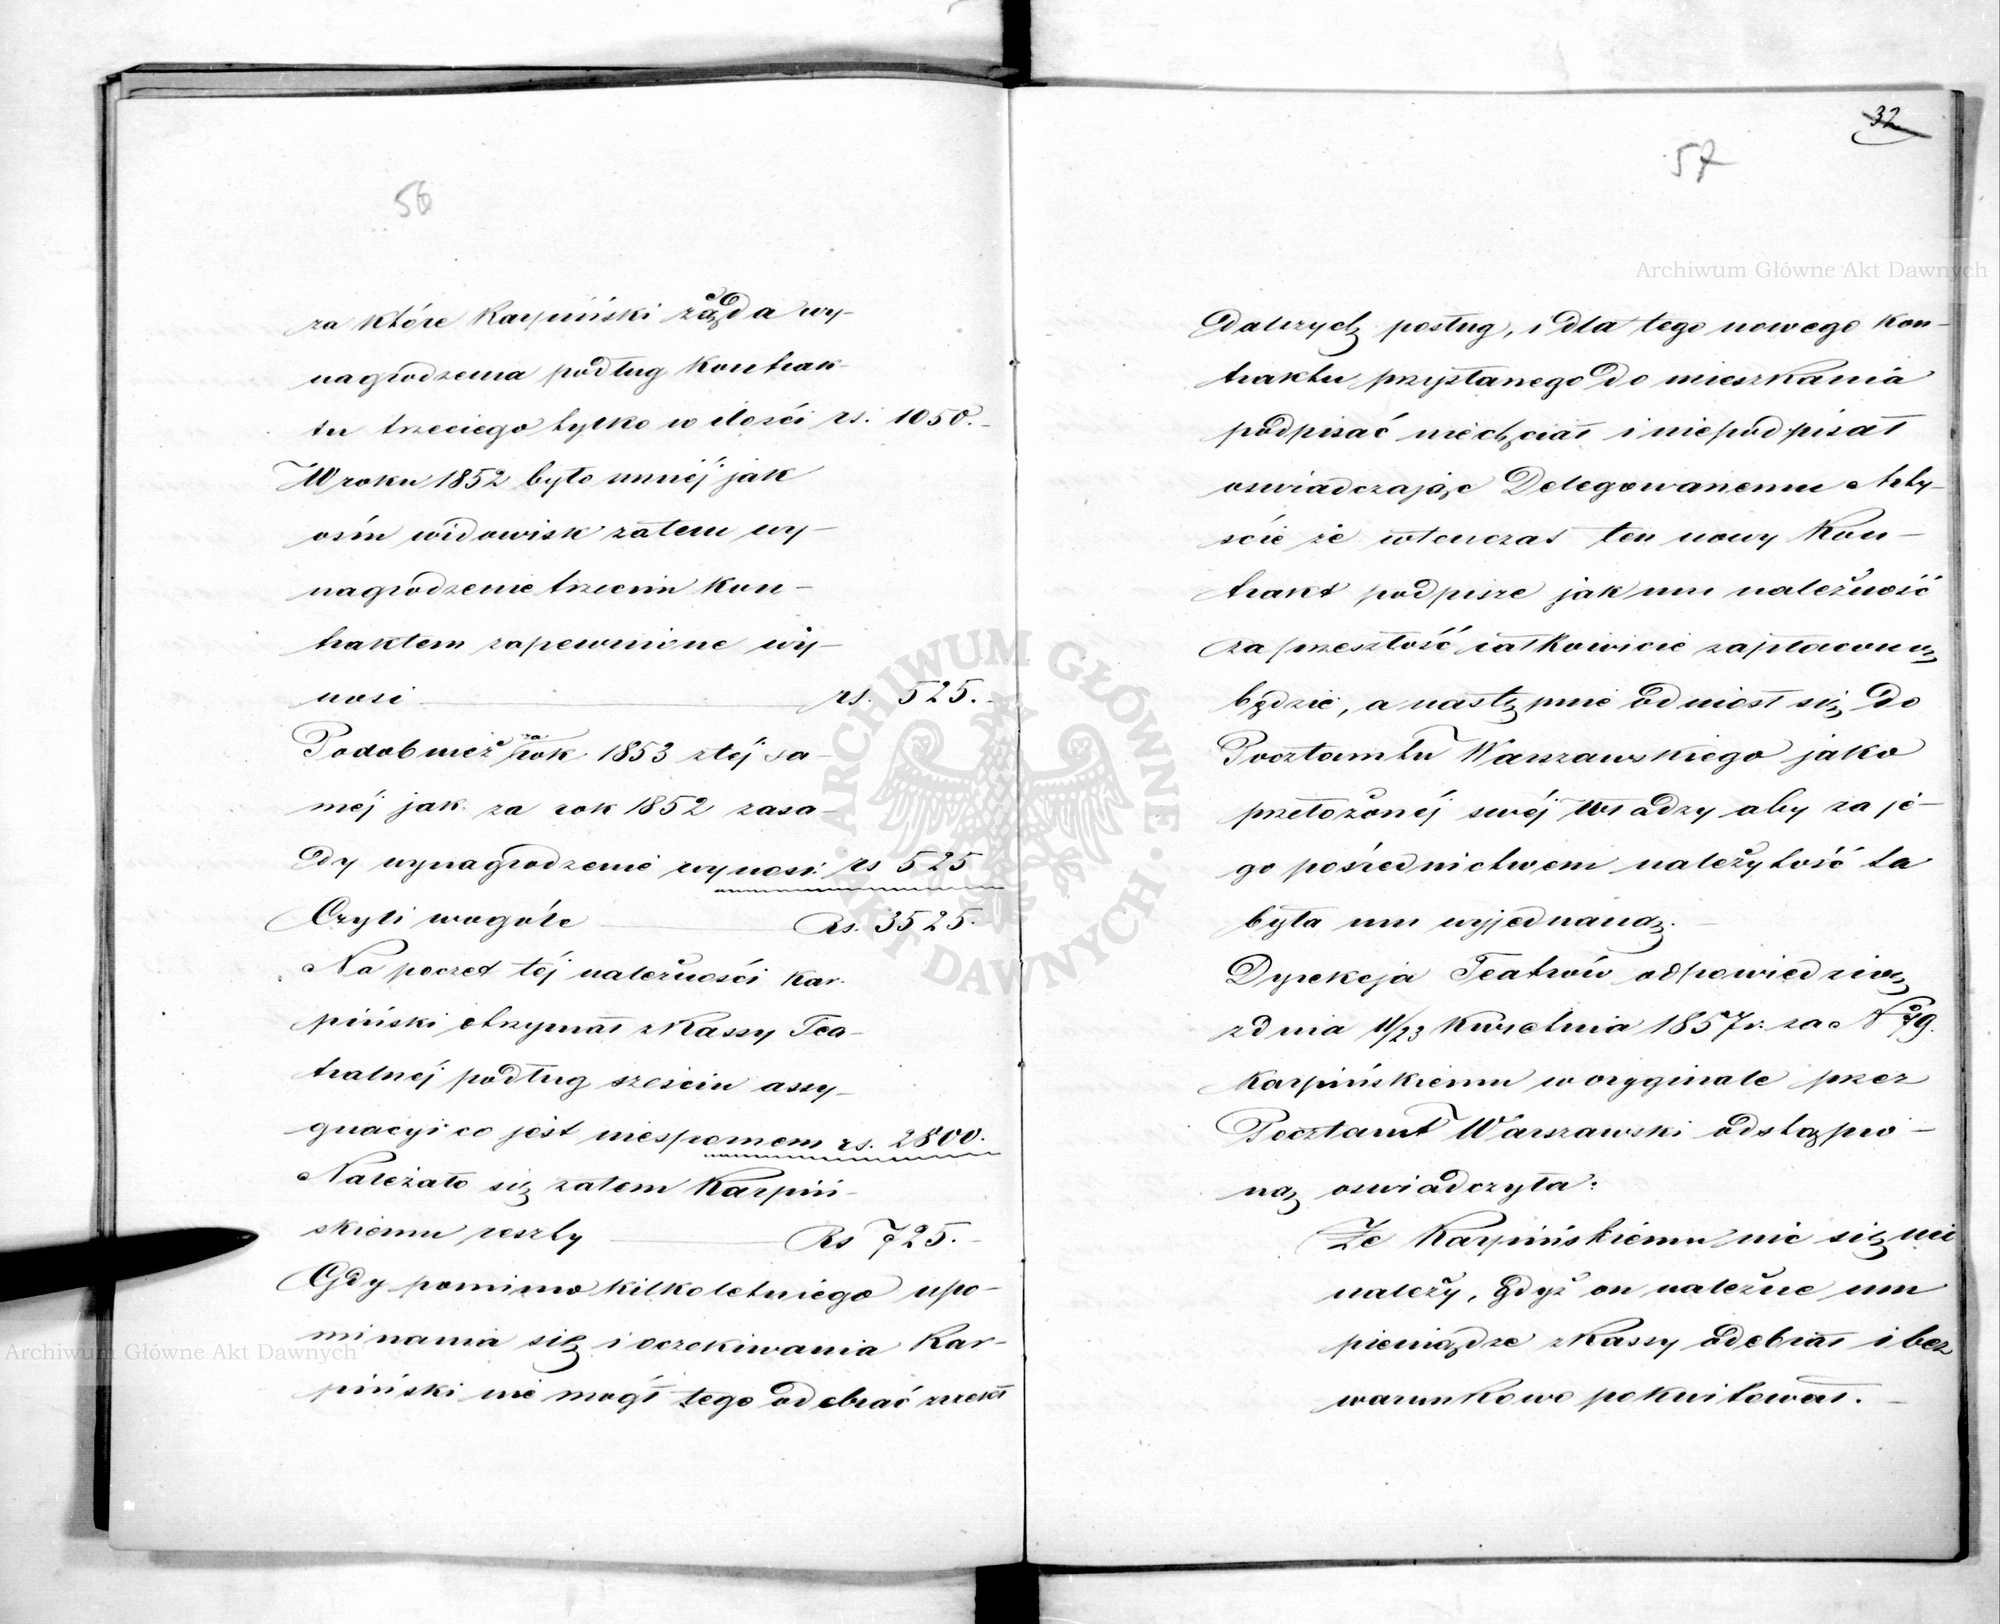 56
za które Karpiński żąda wy-
nagrodzenia podług Kontrak-
tu trzeciego tylko w ilości rs. 1050.-
W roku 1852 było mniej jak
osim widowisk zatem wy-
nagrodzenie trzecim kon-
traktem zapewnione wy-
nosi rs. 525.-
Podobnież za rok 1853 z tej sa-
mej jak za rok 1852 zasa-
dy wynagrodzenie wynosi rs 525
Czyli wogóle Rs. 3525.
Na poczet tej należności Kar-
piński otrzymał z Kassy Tea-
tralnej podług sześciu assy-
gnacyi co jest niespornem rs. 2800.
Należało się zatem Karpiń-
skiemu reszty Rs 725.-
Gdy pomimo kilkoletniego upo-
minania się i oczekiwania Kar-
piński nie mógł tego odebrać zrzekł
32
57
dalszych posług, i dla tego nowego kon-
traktu przysłanego do mieszkania
podpisać niechciał i niepodpisał
oswiadczając Delegowanemu Arty-
scie że wtenczas ten nowy Kon-
trakt podpisze jak mu należność
za przeszłość całkowicie zapłaconą
będzie, a następnie odniósł się do
Pocztamtu Warszawskiego jako
przełożonej swej Władzy aby za je-
go pośrednictwem należytość ta
była mu wyjednaną.-
Dyrekcja Teatrów odpowiedzią
z dnia 11/23 Kwietnia 1857 r. za N
Karpińskiemu w oryginale przez
Pocztamt Warszawski odstąpio-
ną oswiadczyła:
Że Karpińskiemu nic się nie
należy, gdyż on należne mu
pieniądze z Kassy odebrał i bez
warunkowo pokwitował.-
Archiwum Główne Akt Dawnych
Archiwum Główne Akt Dawnych
ARCHIWUM GŁÓWNE · AKT DAWNYCH ·